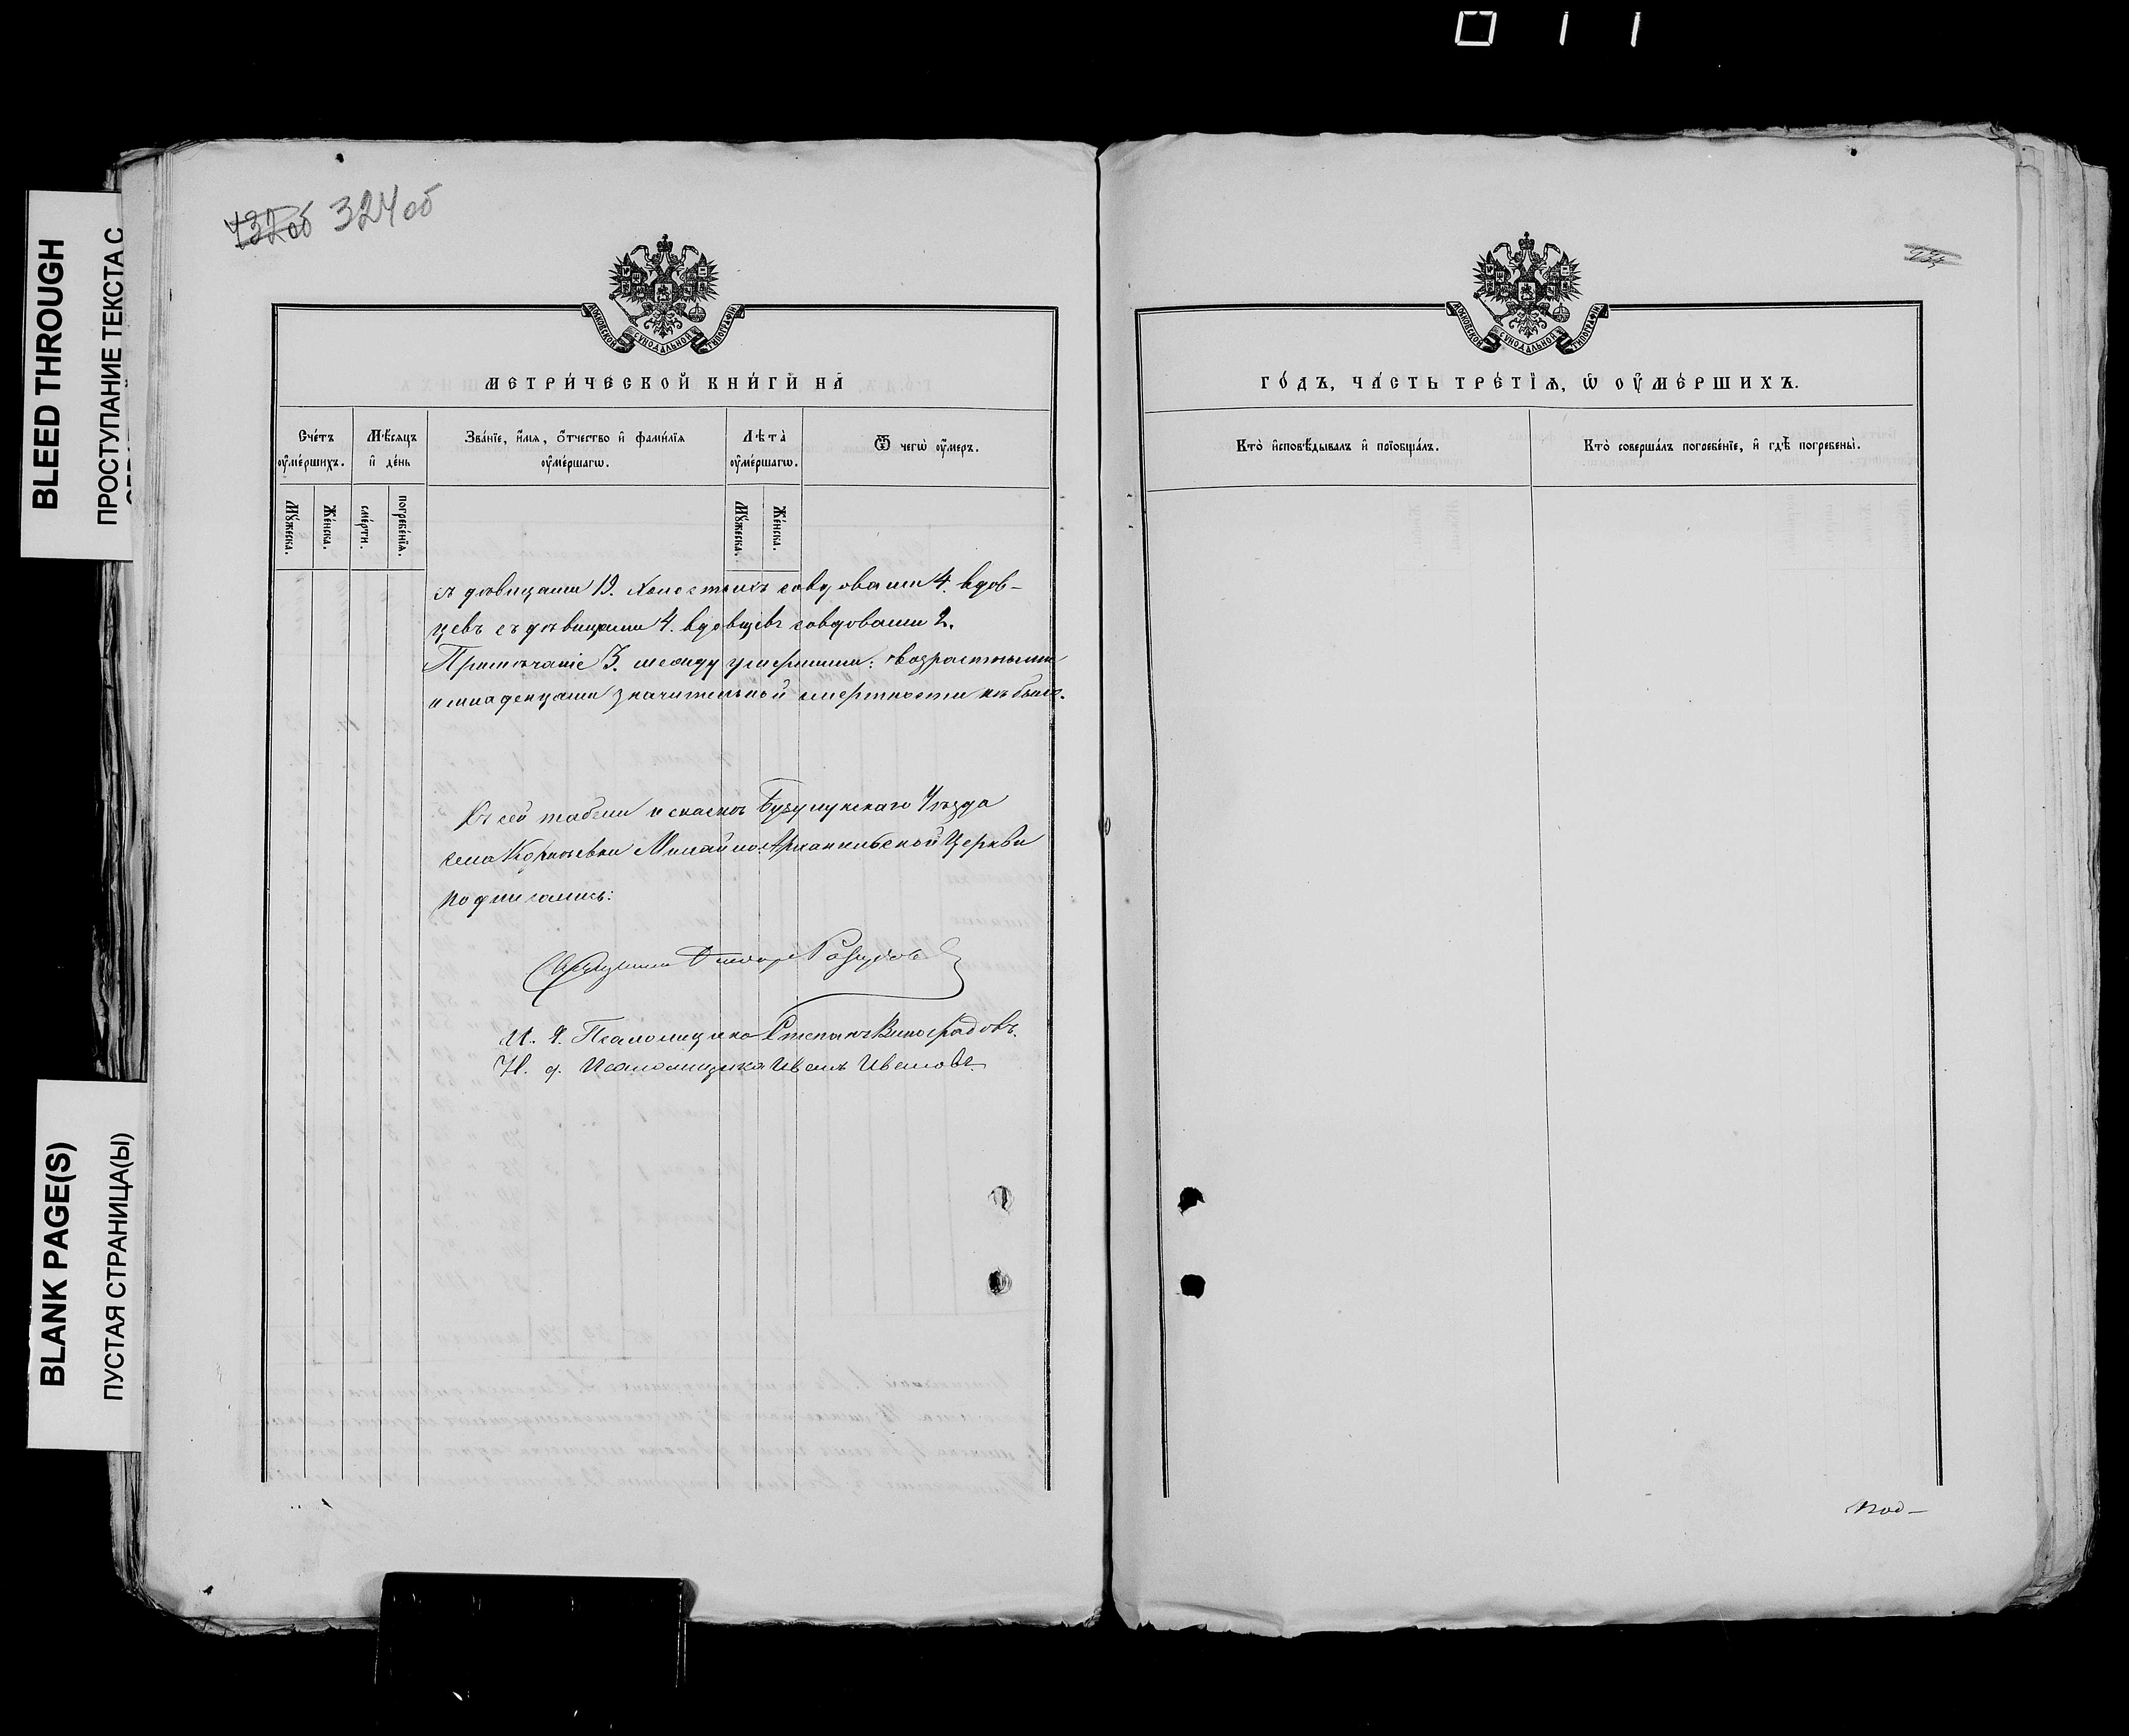 BLEED THROUGH
ПРОСТУПАНИЕ ТЕКСТА С
BLANK PAGE(S)
ПУСТАЯ СТРАНИЦА(Ы)
432об 324об
МОСКОВСКОЙ СѴНОДАЛЬНОЙ ТИПОГРАФІИ
МЕТРИ́ЧЕСКОЙ КНИ́ГИ НА̀
Сче́тъ ᲂу҆ме́ршихъ.
Мѣ́сѧцъ и҆ де́нь
Зва́нїе, и҆́мѧ, ѻ҆́тчество и҆ фами́лїѧ ᲂу҆ме́ршагѡ.
Лѣ̑та ᲂу҆ме́ршагѡ.
Ѿ чегѡ̀ ᲂу҆́меръ.
Мꙋ́жеска.
Же́нска.
сме́рти.
погребе́нїѧ.
Мꙋ́жеска.
Же́нска.
съ дѣвицами 19. Холостыхъ со вдовами 4. вдов-
цевъ съ дѣвицами 4. вдовцевъ со вдовами 2.
Примѣчаніе 3. между умершими: возрастными
и младенцами значительной смертности не было.
Къ сей табели и сказкѣ Бузулукскаго Уѣзда
села Корнѣевки Михайло-Архангельской Церкви
подписались:
Священникъ
И. д. Псаломщика Степанъ Виноградовъ.
И. д. Псаломщика Иванъ Ивановъ
МОСКОВСКОЙ СѴНОДАЛЬНОЙ ТИПОГРАФІИ
ГО́ДЪ, ЧА́СТЬ ТРЕ́ТЇѦ, Ѡ҆ ОУ҆МЕ́РШИХЪ.
Кто̀ и҆сповѣ́дывалъ и҆ прїобща́лъ.
Кто̀ соверша́лъ погребе́нїе, и҆ гдѣ̀ погребены̀.
Под-